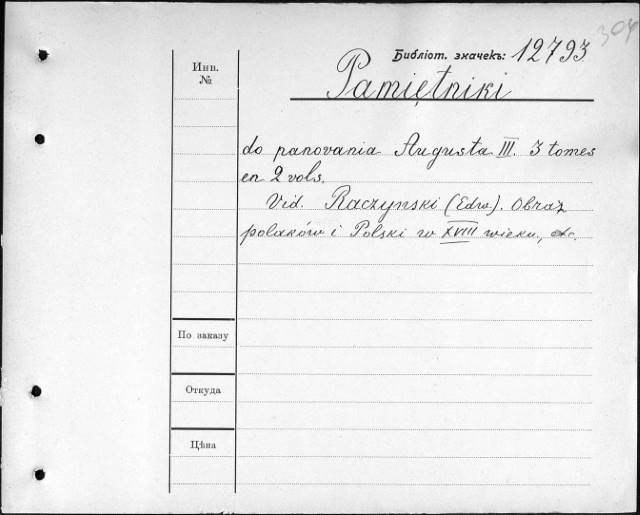 304
Библіот. значекъ: 12793
Инв.
№
Pamiętniki
do panovania Augusta III. 3 tomes
en 2 vols.
Vid. Raczynski (Edw). Obraz
polaków i Polski w XVIII wieku, etc.
По заказу
Откуда
Цѣна